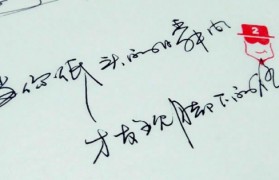 当你低头的瞬间
才发现脚下的路
2